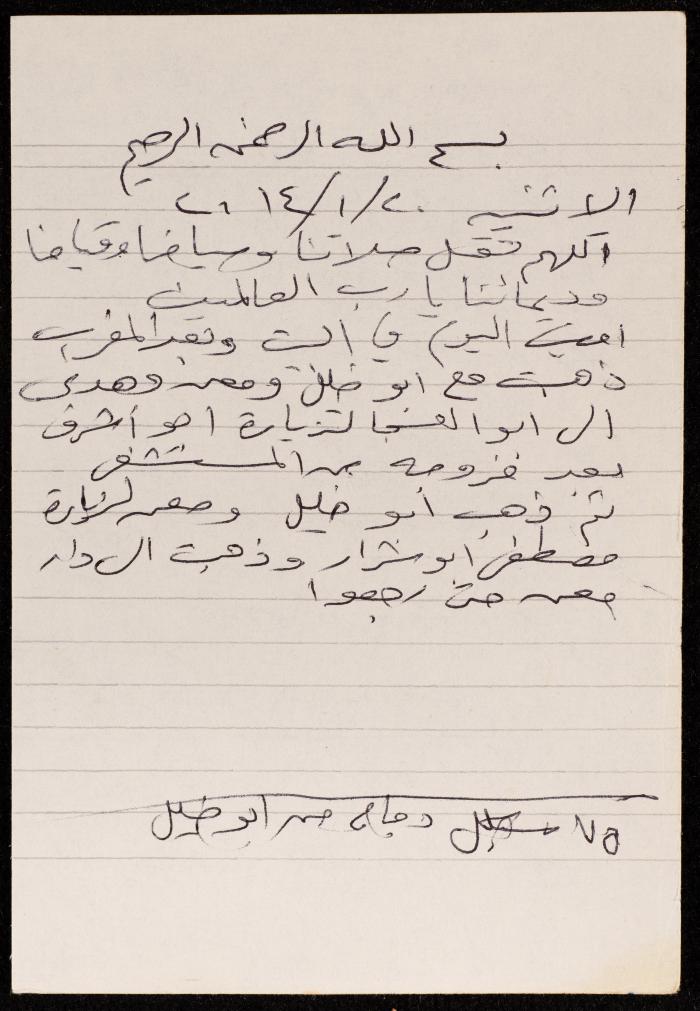 بسم الله الرحمن الرحيم
الاثنين ٢٠/١/٢٠١٤
اللهم تقبل صلاتنا وصيامنا وقيامنا
ودعائنا يا رب العالمين
امضيت اليوم في البيت وبعد المغرب
ذهبت مع ابو خليل ومعن وهدى
ال ابو العنجا لزيارة ابو أشرف
بعد خروجه من المستشفى
ثم ذهب أبو خليل ومعن لزيارة
مصطفى أبو شرار وذهبت ال دار
معن حتى رجعوا
٧٥ شيكل دجاج من ابو خليل